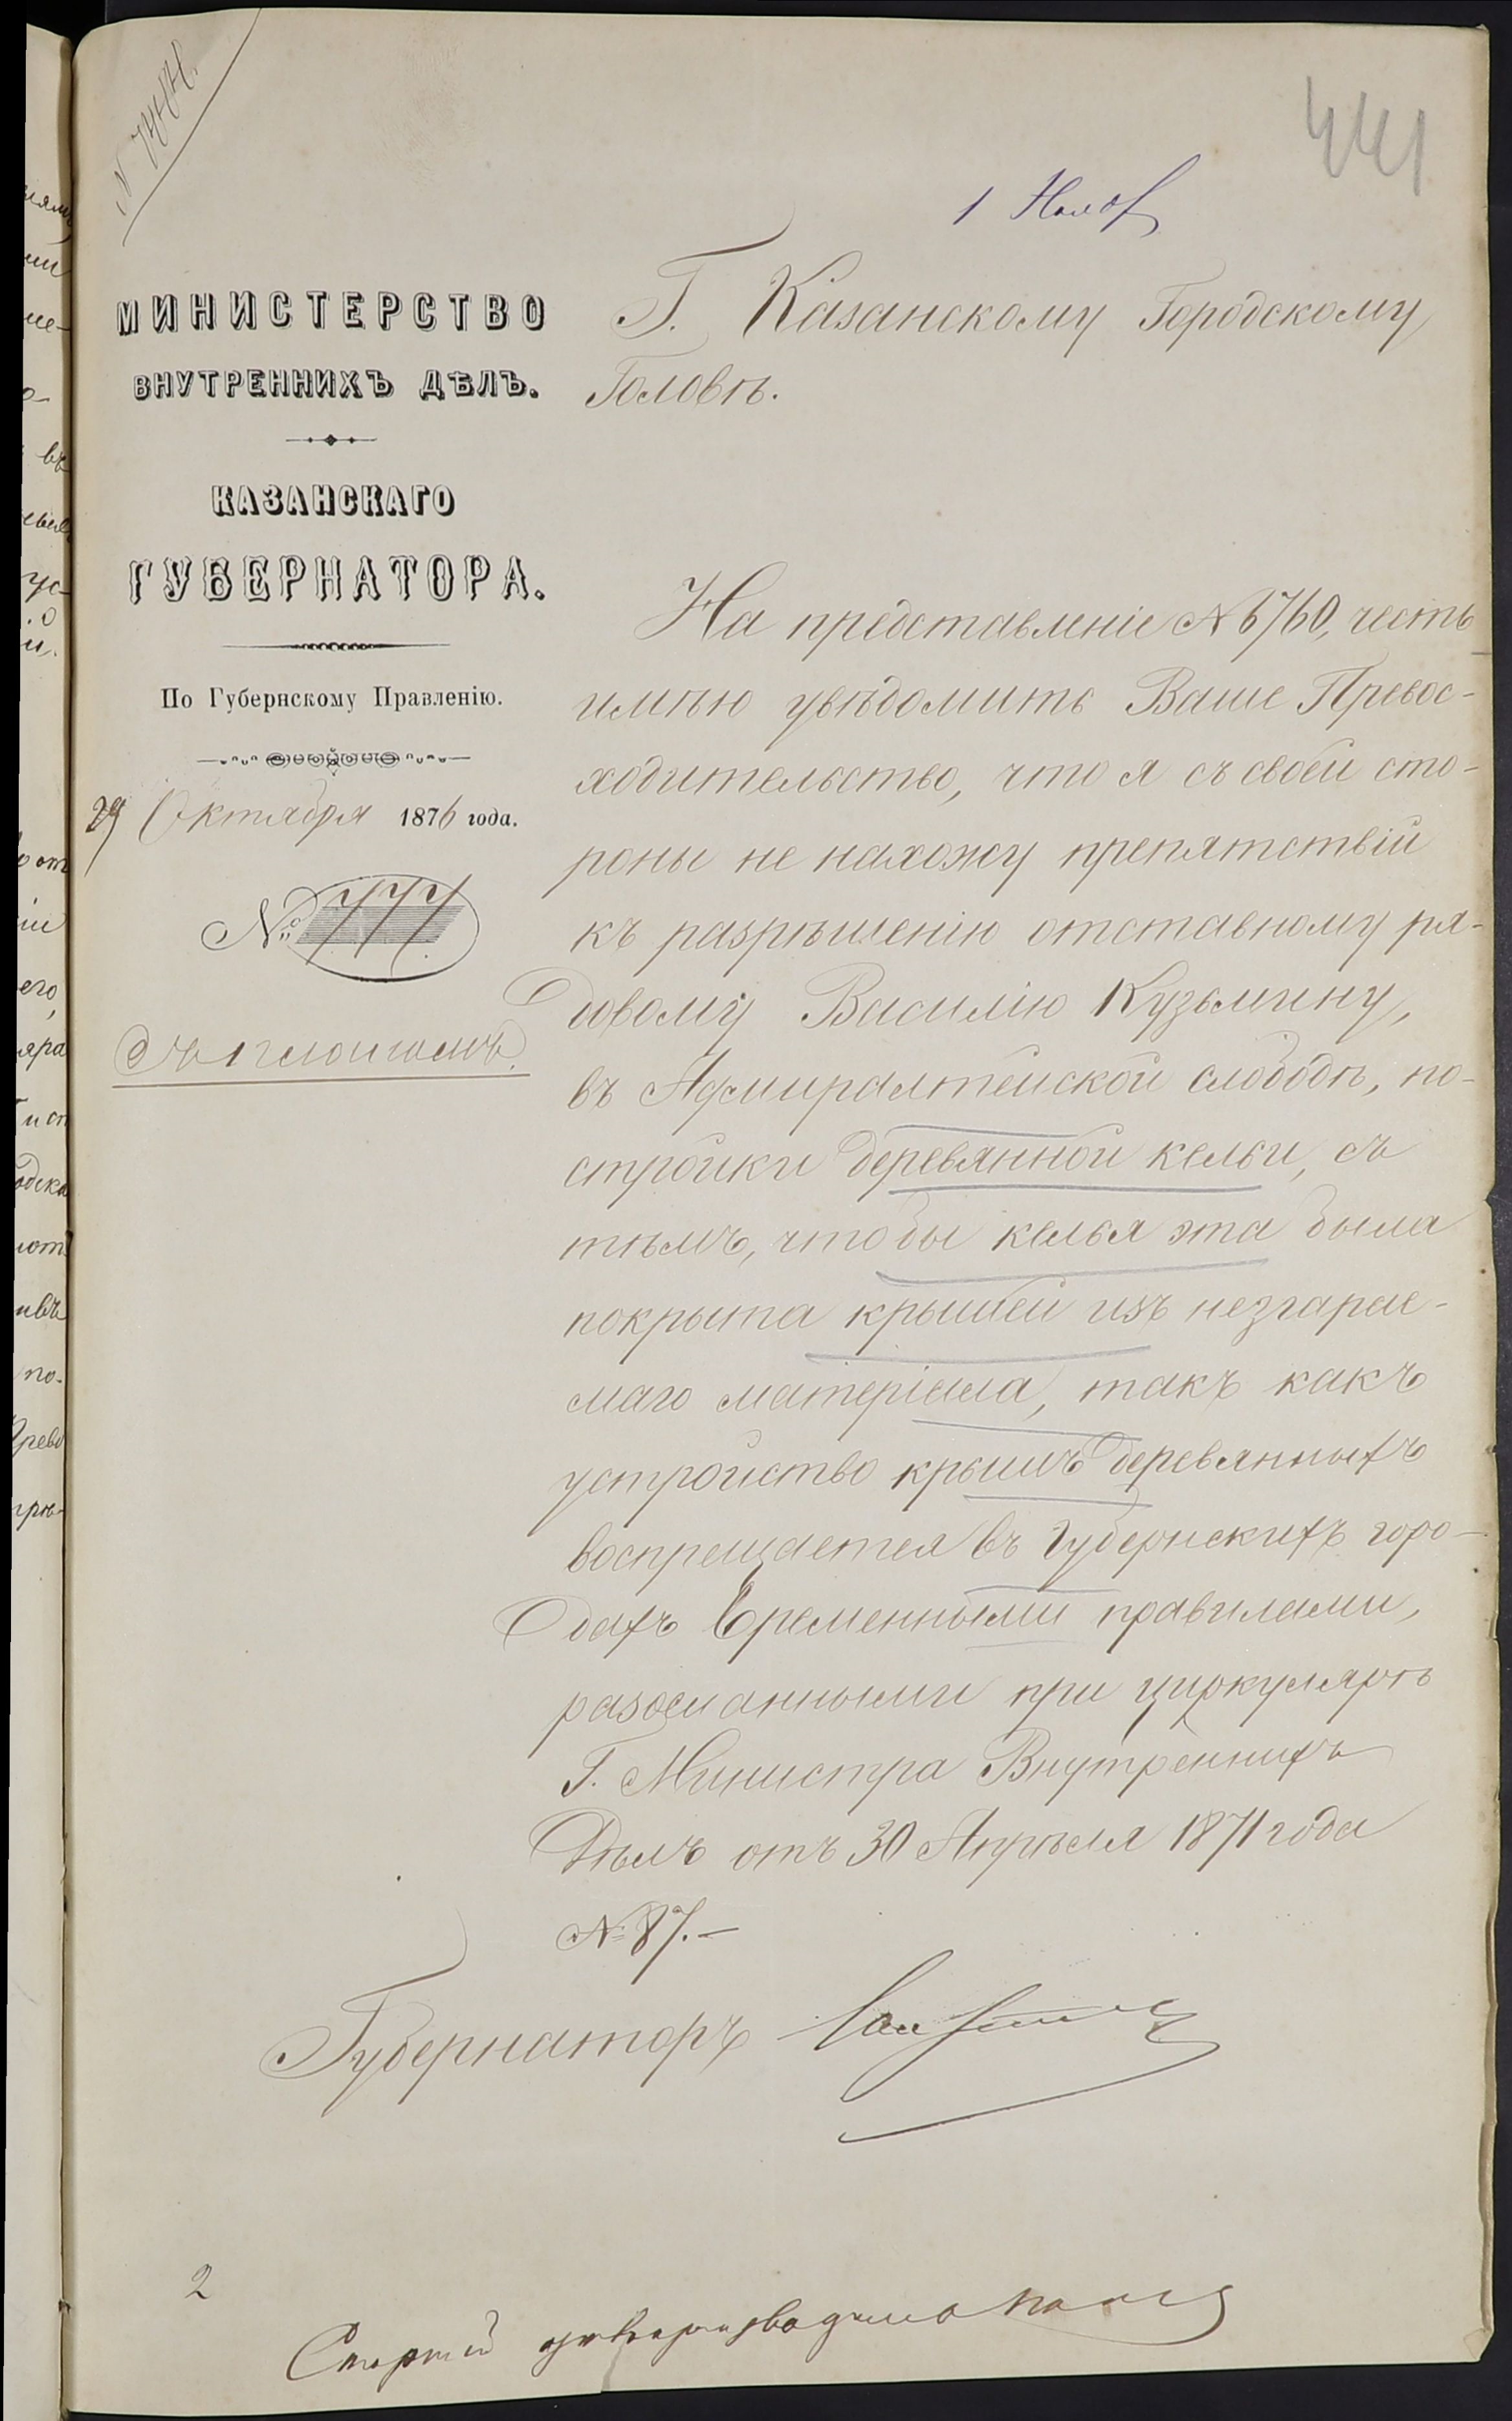 441
1 Нояб
МИНИСТЕРСТВО
ВНУТРЕННИХЪ ДѢЛЪ.
КАЗАНСКАГО
ГУБЕРНАТОРА.
По Губернскому Правленію.
29 Октября 1876 года.
№ 777.
Съ 1 планомъ.
Г. Казанскому Городскому
Головѣ.
На представленіе № 6760, честь
имѣю увѣдомить Ваше Превос-
ходительство, что я съ своей сто-
роны не нахожу препятствій
къ разрѣшенію отставному ря-
довому Василію Кузьмину,
въ Адмиралтейской слободѣ, по-
стройки деревянной кельи, съ
тѣмъ, чтобы келья эта была
покрыта крышей изъ незгарае-
маго матеріала, такъ какъ
устройство крышъ деревянныхъ
воспрещается въ Губернскихъ горо-
дахъ Временными правилами,
разосланными при циркулярѣ
Г. Министра Внутреннихъ
Дѣлъ отъ 30 Апрѣля 1871 года
№ 87.—
Губернаторъ
2